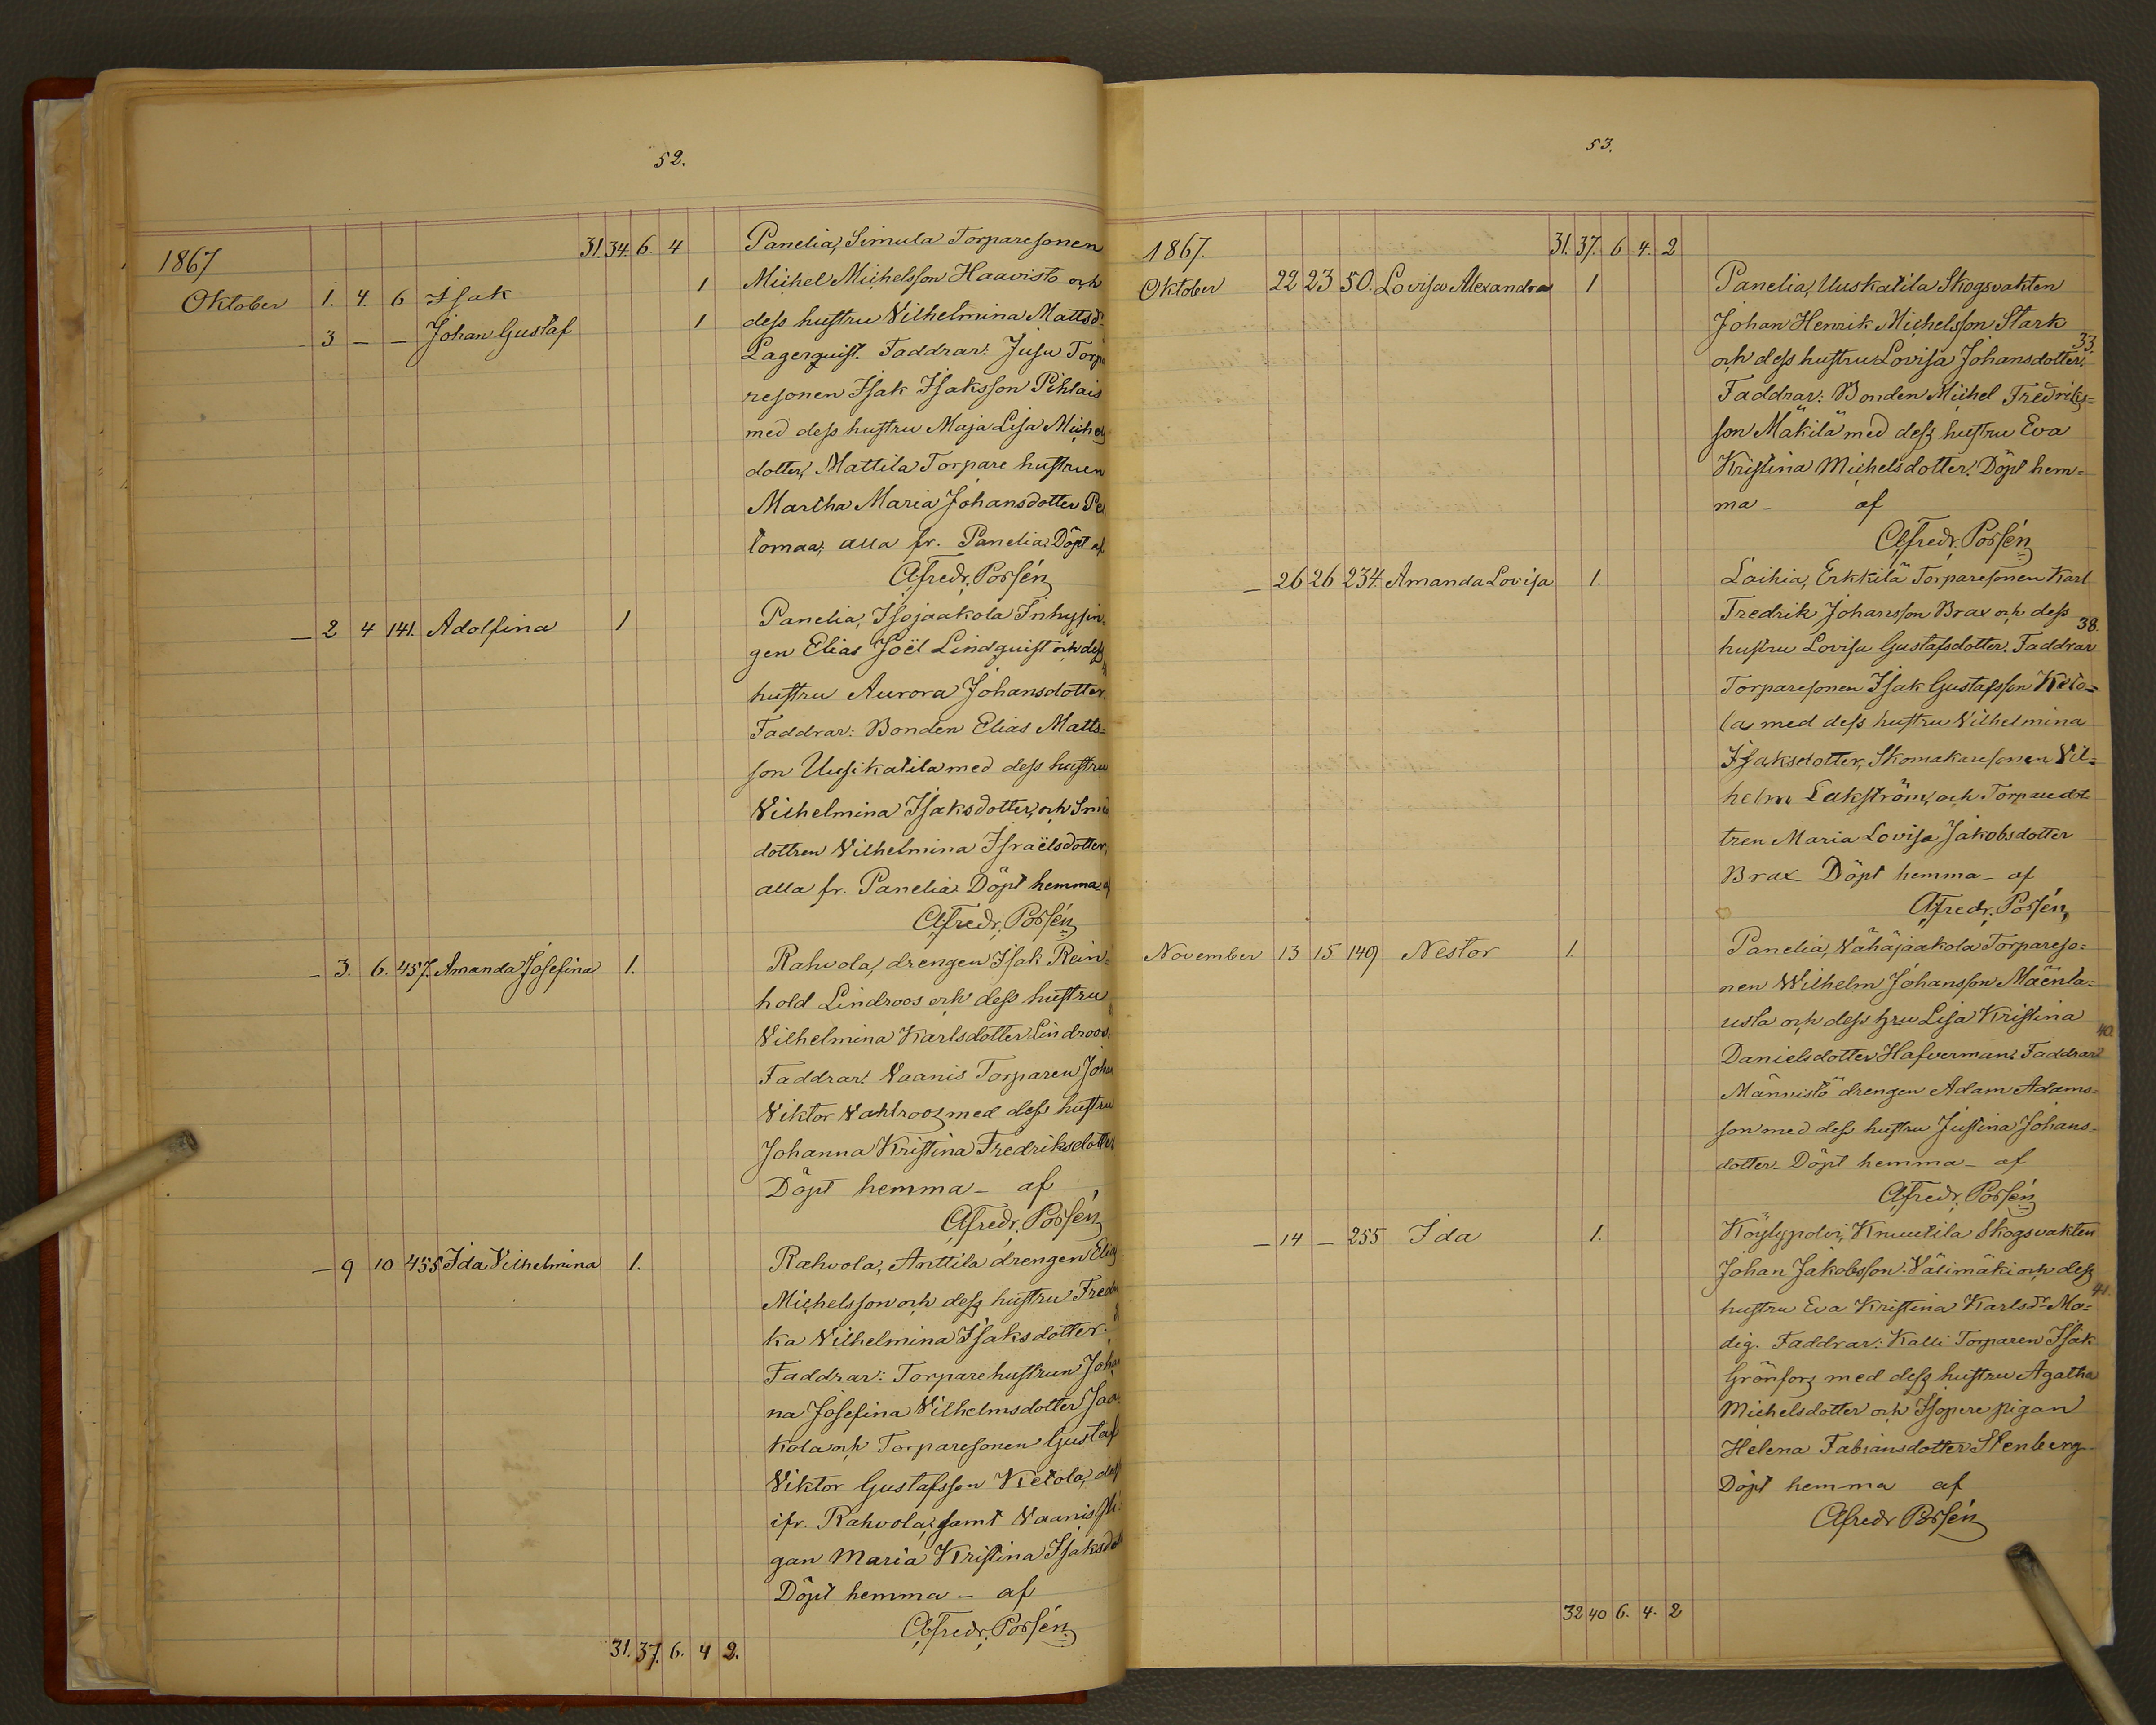 52.
1867
31. 34. 6. 4
Panelia, Simula Torparesonen
Oktober 1. 4. 6 Isak 1
Michel Michelsson Haavisto och
- 3 - - Johan Gustaf 1
dess hustru Vilhelmina Mattsdr
Lagerquist. Faddrar: Jusu Torpa
resonen Isak Isaksson Pihlais
med dess hustru Maja Lisa Michels
dotter, Mattila Torpare hustrun
Martha Maria Johansdotter Pel
tomaa, alla fr. Panelia. Döpt af
A. Fredr. Possén
- 2 4 141. Adolfina 1
Panelia, Isojaakola Inhysin-
gen Elias Joël Lindquist och dess
hustru Aurora Johansdotter.
Faddrar: Bonden Elias Matts=
son Uusikatila med dess hustru
Vilhelmina Isaksdotter, och Smed
dottren Vilhelmina Israëlsdotter,
alla fr. Panelia. Döpt hemma af
A. Fredr. Possén
- 3. 6. 457. Amanda Josefina 1.
Rahvola, drengen Isak Rein=
hold Lindroos och dess hustru
Vilhelmina Karlsdotter Lindroos.
Faddrar: Vaanis Torparen Johan
Viktor Vahlroos med dess hustru
Johanna Kristina Fredriksdotter
Döpt hemma - af
A. Fredr. Possén
- 9 10 455 Ida Vilhelmina 1.
Rahvola, Anttila drengen Elias
Michelsson och dess hustru Fredri
ka Vilhelmina Isaksdotter.
Faddrar: Torpare hustrun Johan
na Josefina Vilhelmsdotter Jaa
kola och Torparesonen Gustaf
Viktor Gustafsson Ketola,
ifr. Rahvola, samt Vaanis Pi
gan Maria Kristina Isaksdott
Döpt hemma - af
A. Fredr. Possén
31. 37. 6. 4 2.
53.
1867. 31. 37. 6 4. 2
Oktober 22 23 50. Lovisa Alexandra 1
Panelia, Uuskatila Skogsvakten
Johan Henrik Michelsson Stark
33.
och dess hustru Lovisa Johansdotter.
Faddrar: Bonden Michel Fredriks=
son Mäkilä med dess hustru Eva
Kristina Michelsdotter. Döpt hem=
ma - af
A. Fredr. Possén
- 26 26 234. Amanda Lovisa 1.
Laihia, Erkkilä Torparesonen Karl
Fredrik Johansson Brax och dess
38.
hustru Lovisa Gustafsdotter. Faddrar
Torparesonen Isak Gustafsson Keto=
la med dess hustru Vilhelmina
Isaksdotter, Skomakaresonen Vil=
helm Lakström, och Torparedot
tren Maria Lovisa Jakobsdotter
Brax. Döpt hemma - af
A. Fredr. Possén
November 13 15 149 Nestor 1.
Panelia, Vähäjaakola Torpareso=
nen Wilhelm Johansson Mäenta=
usta och dess hru Lisa Kristina
40.
Danielsdotter Hafverman. Faddrar
Männistö drengen Adam Adams=
son med dess hustru Justina Johans=
dotter. Döpt hemma - af
A. Fredr. Possén
- 14 - 255 Ida 1.
Köylypolvi, Knuutila Skogsvakten
Johan Jakobsson Välimäki och dess
41.
hustru Eva Kristina Karlsdr Mo=
dig. Faddrar: Kalli Torparen Isak
Grönfors med dess hustru Agatha
Michelsdotter och Isopere pigan
Helena Fabiansdotter Stenberg
Döpt hemma af
A. Fredr. Possén
32 40 6. 4. 2